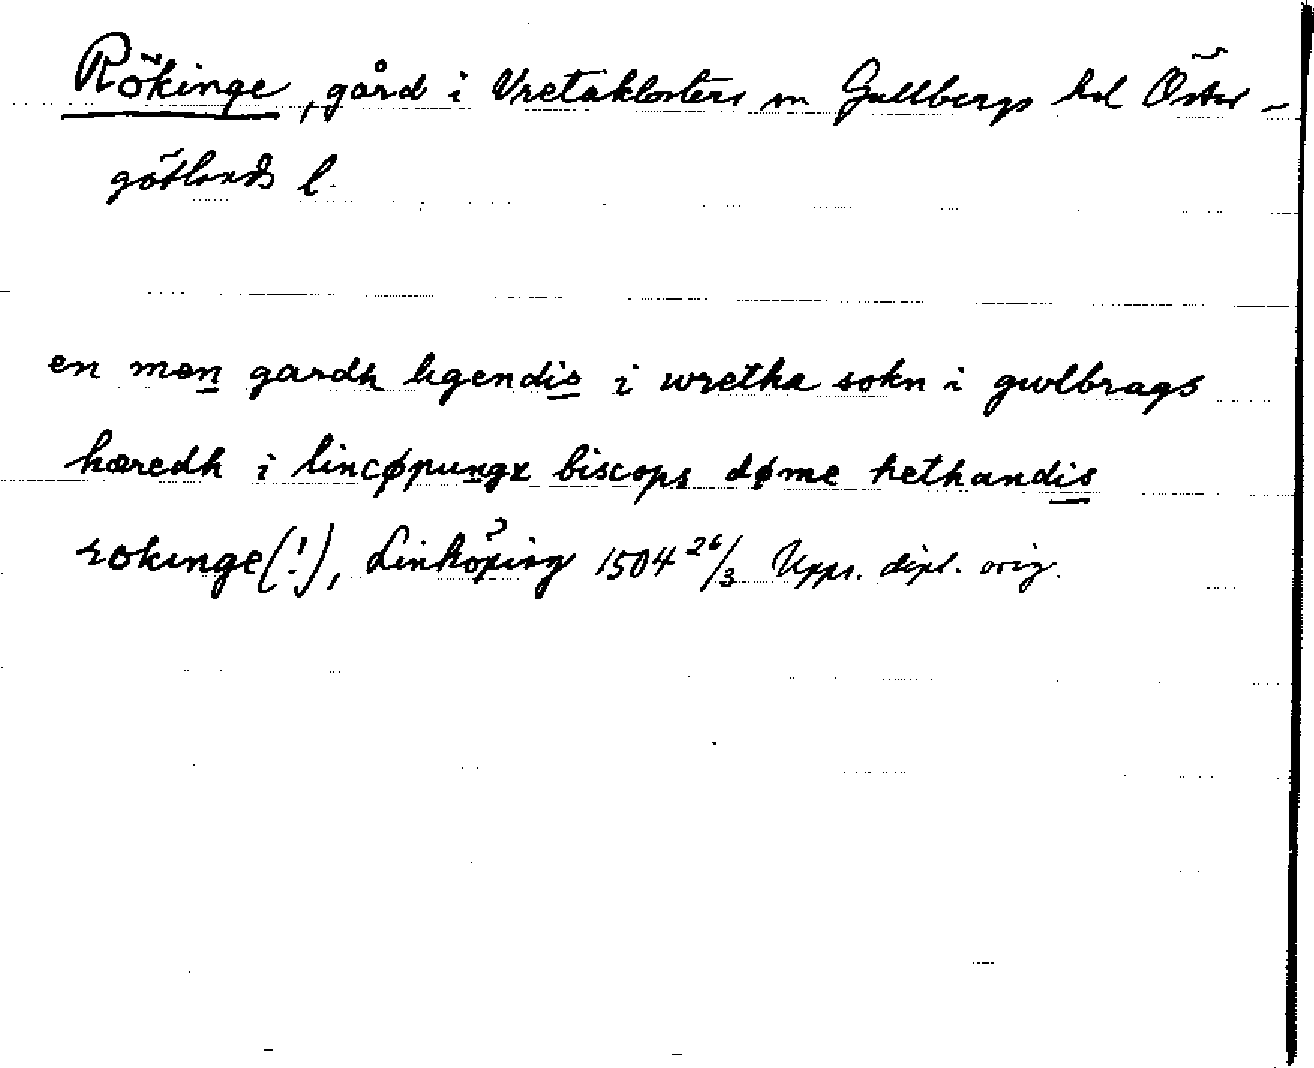 Rökinge, gård i Vretaklosters sn Gullbergs hd Öster-
götlands l.
en mɑn gardh ligendis i wretha sokn i gwlbrags
hæredh i lincøpungx biscops døme hethandis
rokinge(!), Linköping 1504 26/3 Upps. dipl. orig.